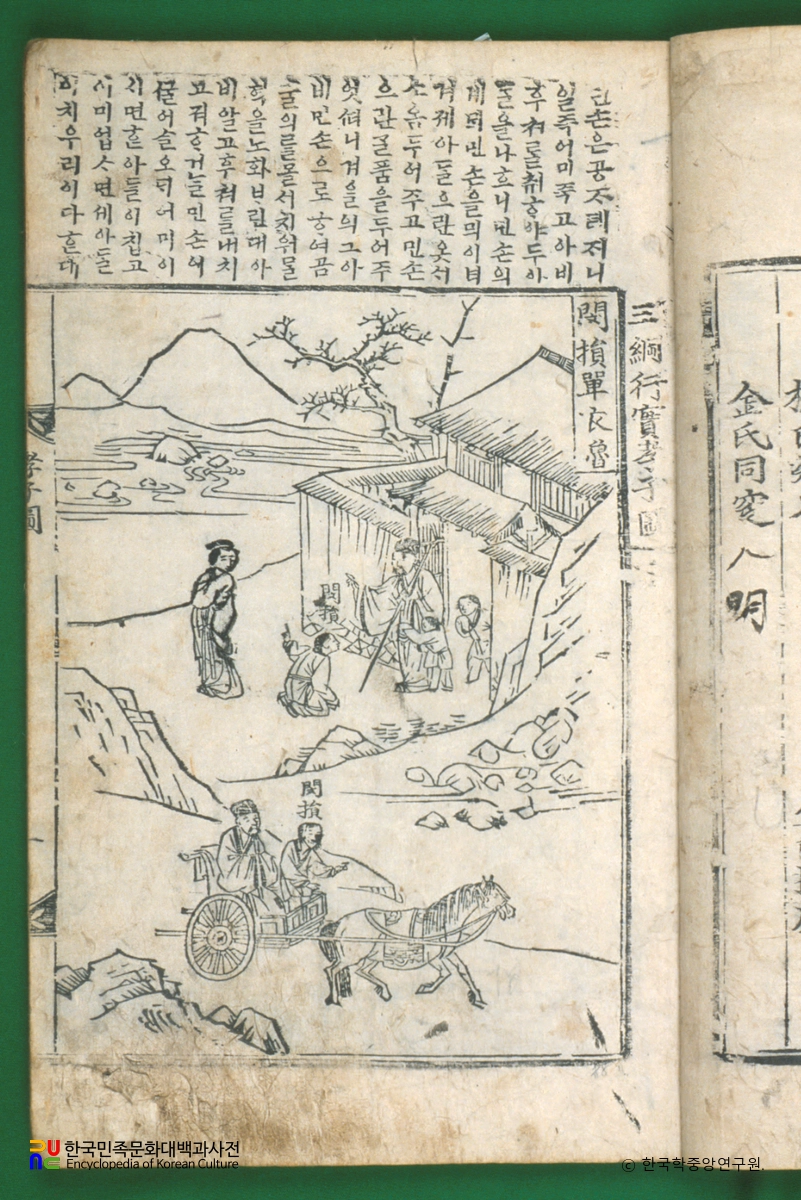 민손은공ᄌᆞ뎨저니
일즉어미죽고아비
후쳐ᄅᆞᆯ취ᄒᆞ야두아
ᄃᆞᆯ을나ᄒᆞ니민손의
계뫼민손을믜이녀
겨제아ᄃᆞᆯ으란옷서
소옴두어주고민손
으란ᄀᆞᆯ품을두어주
엇더니겨을의그아
비민손으로ᄒᆞ여곰
술의ᄅᆞᆯ몰서치워물
혁을노화ᄇᆞ린대아
비알고후쳐ᄅᆞᆯ내치
고져ᄒᆞ거ᄂᆞᆯ민손이
ᄭᅮ러슬오ᄃᆡ어미이
시면ᄒᆞᆫ아ᄃᆞᆯ이칩고
어미업ᄉᆞ면세아ᄃᆞᆯ
이치우리이다ᄒᆞᆫ대
三綱行實孝子圖
閔損單衣魯
閔損
閔損
孝子圖
金氏同窆 八 明
한국민족문화대백과사전
Encyclopedia of Korean Culture
© 한국학중앙연구원.